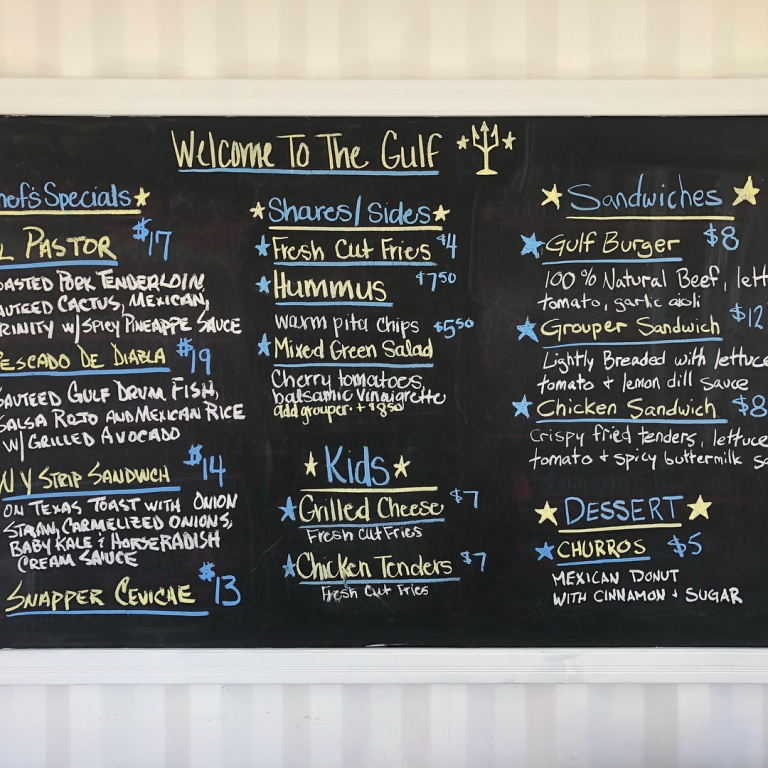 Welcome To The Gulf
hef's Specials
L PASTOR $17
OASTED PORK TENDERLOIN,
AUTEED CACTUS, MEXICAN,
RINITY W/ SPICY PINEAPPE SAUCE
PESCADO DE DIABLA $19
SAUTEED GULF DRUM FISH,
SALSA ROJO AND MEXICAN RICE
W/ GRILLED AVOCADO
NY STRIP SANDWCH $14
ON TEXAS TOAST WITH ONION
STRAW, CARMELIZED ONIONS,
BABY KALE & HORSERADISH
CREAM SAUCE
SNAPPER CEVICHE $13
Shares/Sides
Fresh Cut Fries $4
Hummus $7.50
warm pita chips
Mixed Green Salad $5.50
Cherry tomatoes,
balsamic vinaigrette
add grouper + $8.50
Kids
Grilled Cheese $7
Fresh Cut Fries
Chicken Tenders $7
Fresh Cut Fries
Sandwiches
Gulf Burger $8
100% Natural Beef, lett
tomato, garlic aioli
Grouper Sandwich $12
Lightly Breaded with lettuce
tomato + lemon dill sauce
Chicken Sandwich $8
Crispy fried tenders, lettuce
tomato + spicy buttermilk sa
DESSERT
CHURROS $5
MEXICAN DONUT
WITH CINNAMON + SUGAR